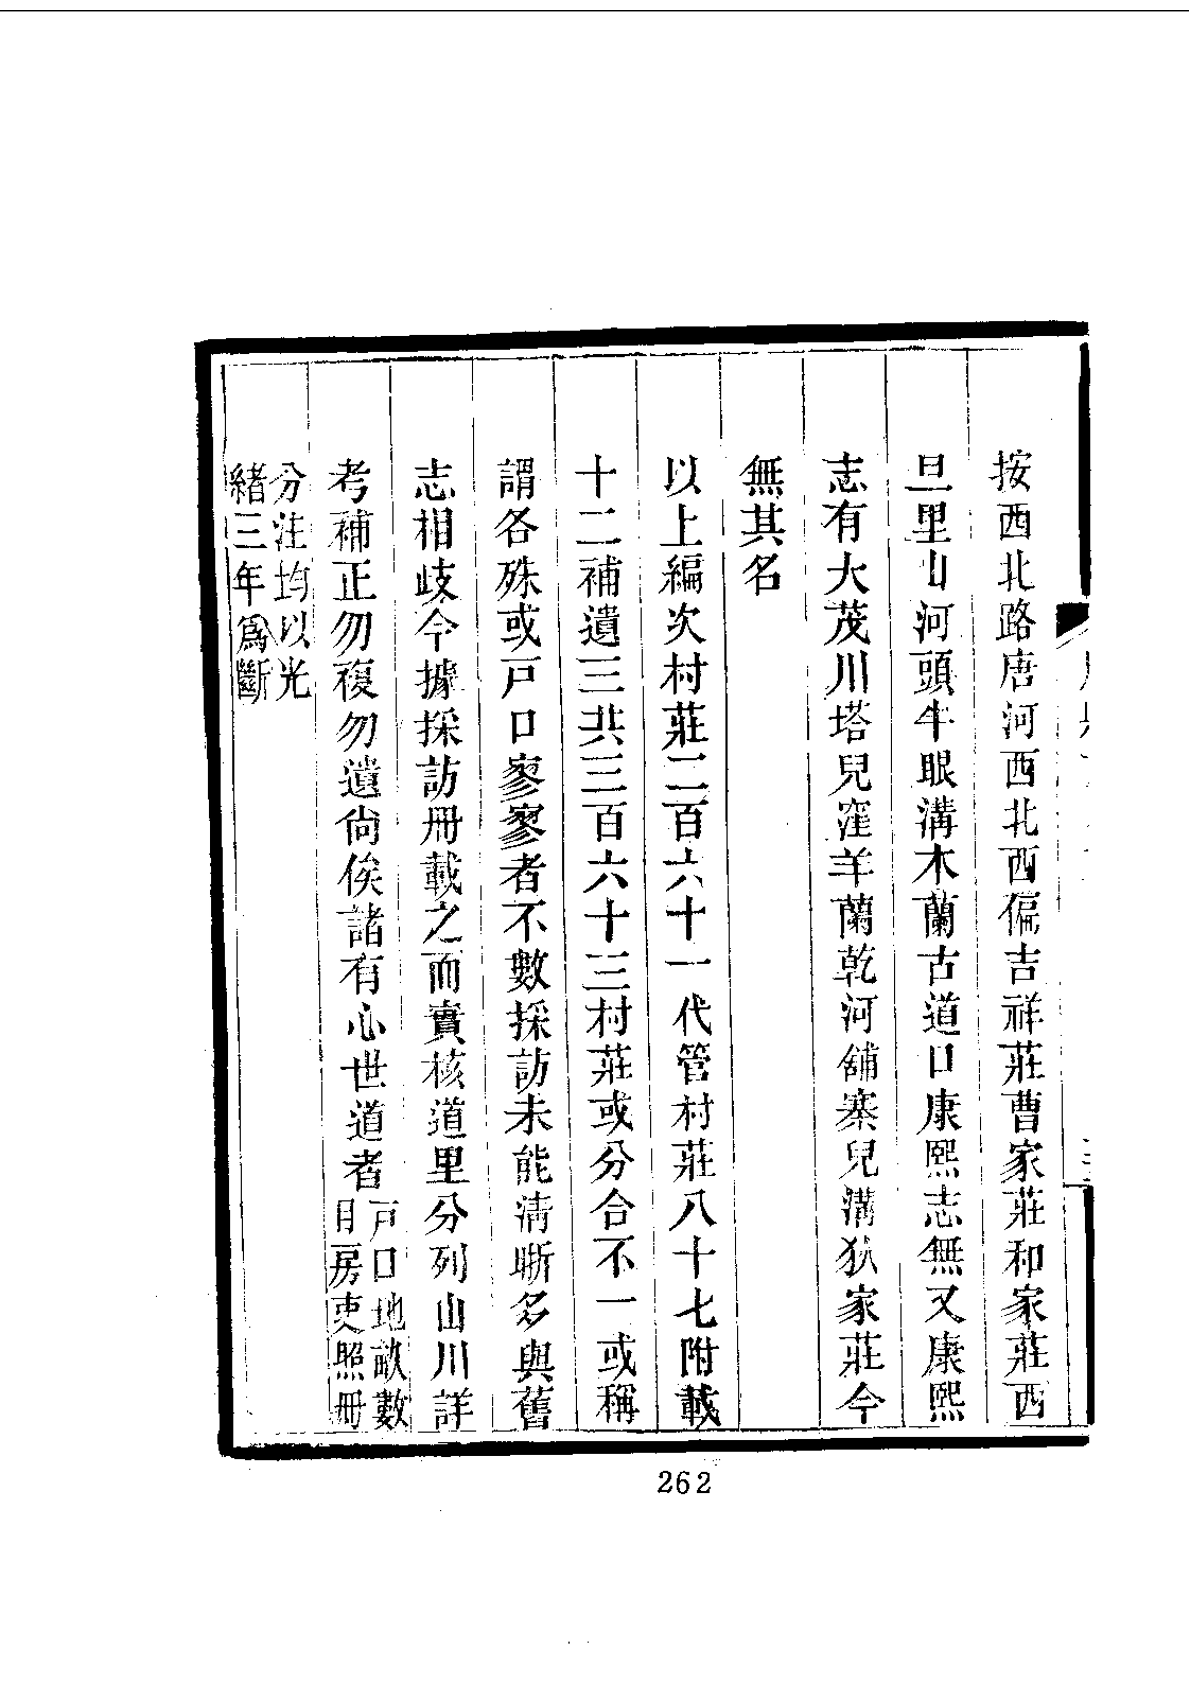 按西北路唐河西北西偏吉祥莊曹家莊和家莊西
旦里山河頭牛眼溝木蘭古道口康熙志無又康熙
志有大茂川塔兒窪羊蘭乾河舖寨兒溝狄家莊今
無其名
以上編次村莊二百六十一代管村莊八十七附載
十二補遺三共三百六十三村莊或分合不一或稱
謂各殊或戸口寥寥者不數採訪未能清晰多與舊
志相歧今據採訪冊載之而實核道里分列山川詳
考補正勿複勿遺尙俟諸有心世道者
戸口地畝數
目房吏照冊
分注均以光
緒三年爲斷
262